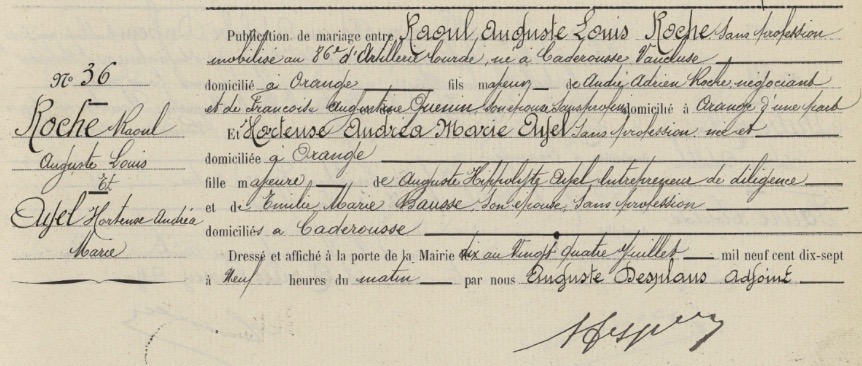 Publication de mariage entre Raoul Auguste Louis Roche Sans profession
mobilisé au 86e d'Artillerie lourde, né à Caderousse Vaucluse
domicilié à Orange fils majeur de André Adrien Roche, négociant
et de Françoise Augustine Guenin, son épouse sans profon domicilié à Orange d'une part
Et Hortense Andréa Marie Ayel Sans profession née et
domiciliée à Orange
fille majeure de Auguste Hippolyte Ayel Entrepreneur de diligence
et de Emilie Marie Bausse, Son épouse, Sans profession
domiciliés à Caderousse
Dressé et affiché à la porte de la Mairie dix au Vingt quatre Juillet mil neuf cent dix-sept
à Neuf heures du matin par nous Auguste Desplans adjoint
No 36
Roche Raoul
Auguste Louis
Et
Ayel Hortense Andréa
Marie